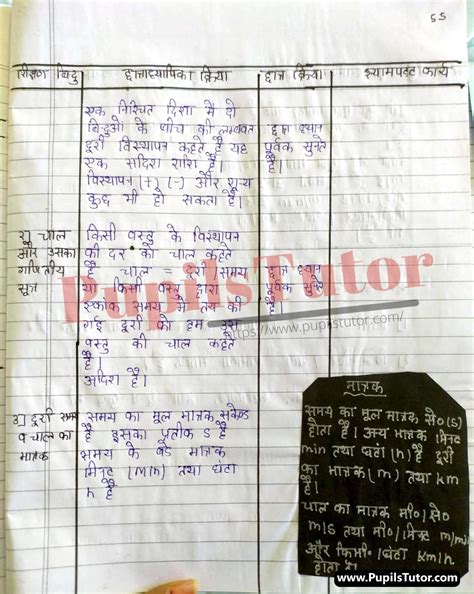 55
शिक्षण बिंदु छात्राध्यापिका क्रिया छात्र क्रिया श्यामपट्ट कार्य
एक निश्चित दिशा में दो
बिंदुओं के बीच की लम्बवत छात्र ध्यान
दूरी विस्थापन कहते है यह पूर्वक सुनते
एक सदिश राशि है। है।
विस्थापन (+) (-) और शून्य
कुछ भी हो सकता है।
२) चाल किसी वस्तु के विस्थापन
और उसका की दर को चाल कहते
गणितीय है चाल = दूरी / समय छात्र ध्यान
सूत्र या किसी वस्तु द्वारा पूर्वक सुनते
एकांक समय में तय की है।
गई दूरी को हम उस
वस्तु की चाल कहते
है।
अदिश है।
3) दूरी समय समय का मूल मात्रक सेकेण्ड
व चाल का है इसका प्रतीक S है
मात्रक समय के बड़े मात्रक
मिनट (Min) तथा घंटा
h है
मात्रक
समय का मूल मात्रक से० (s)
होता है। अन्य मात्रक मिनट
min तथा घंटा (h) है दूरी
का मात्रक (m) तथा km
है।
चाल का मात्रक मी०/से०
m/s तथा मी०/मिनट m/mi
और किमी०/घंटा km/h
होता है।
PupilsTutor
https://www.pupilstutor.com/
www.PupilsTutor.com